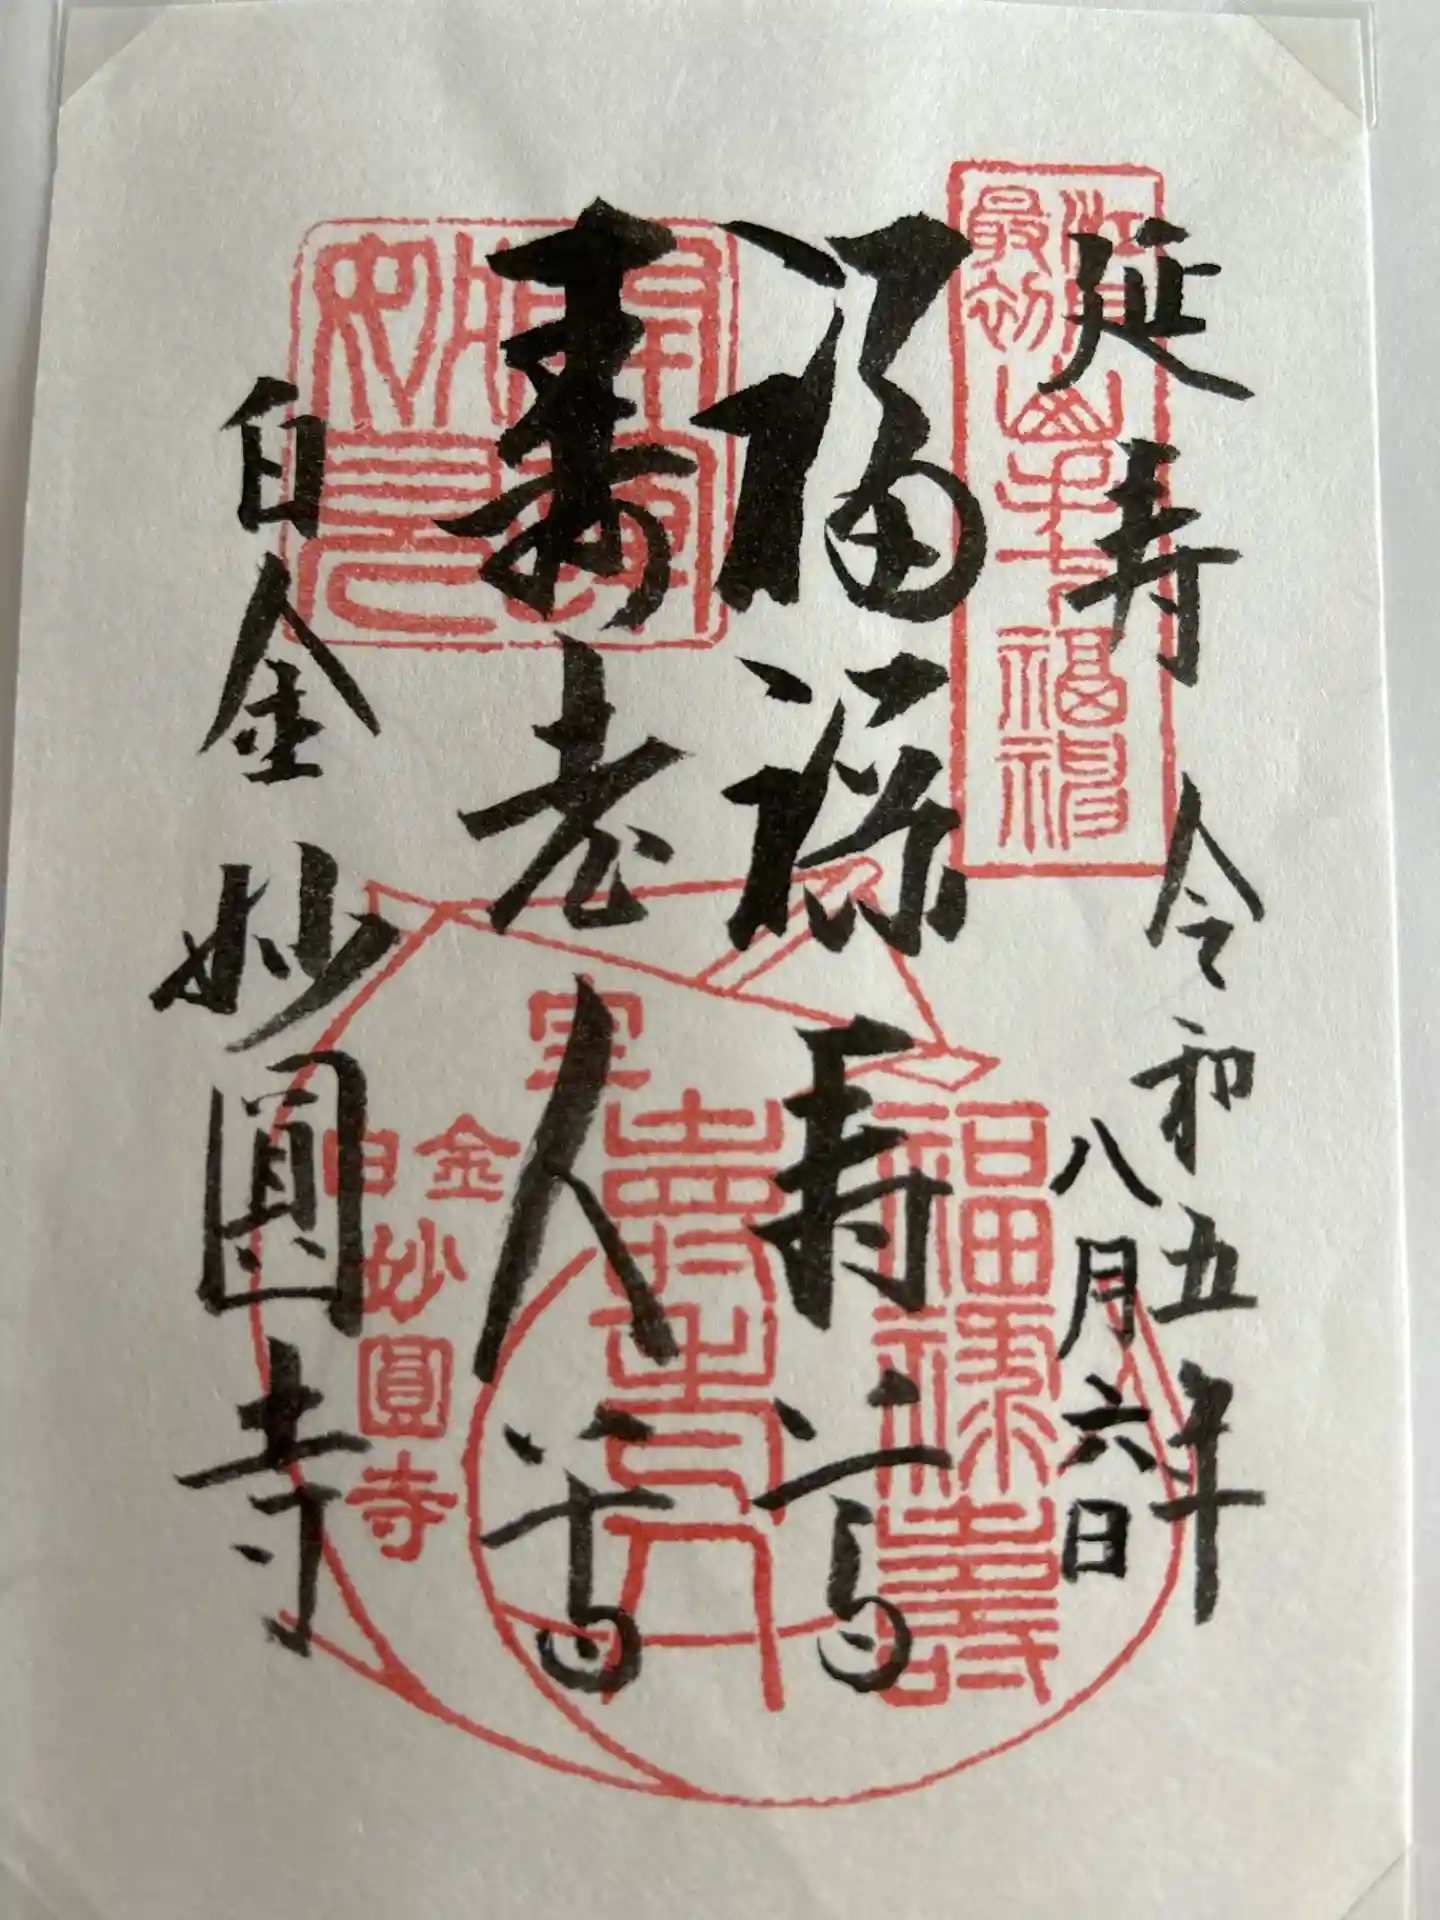 延寿
令和五年
八月六日
福禄寿尊
寿老人尊
白金 妙圓寺
江戸最初
山手七福神
福禄寿
寿老人
白金
妙圓寺